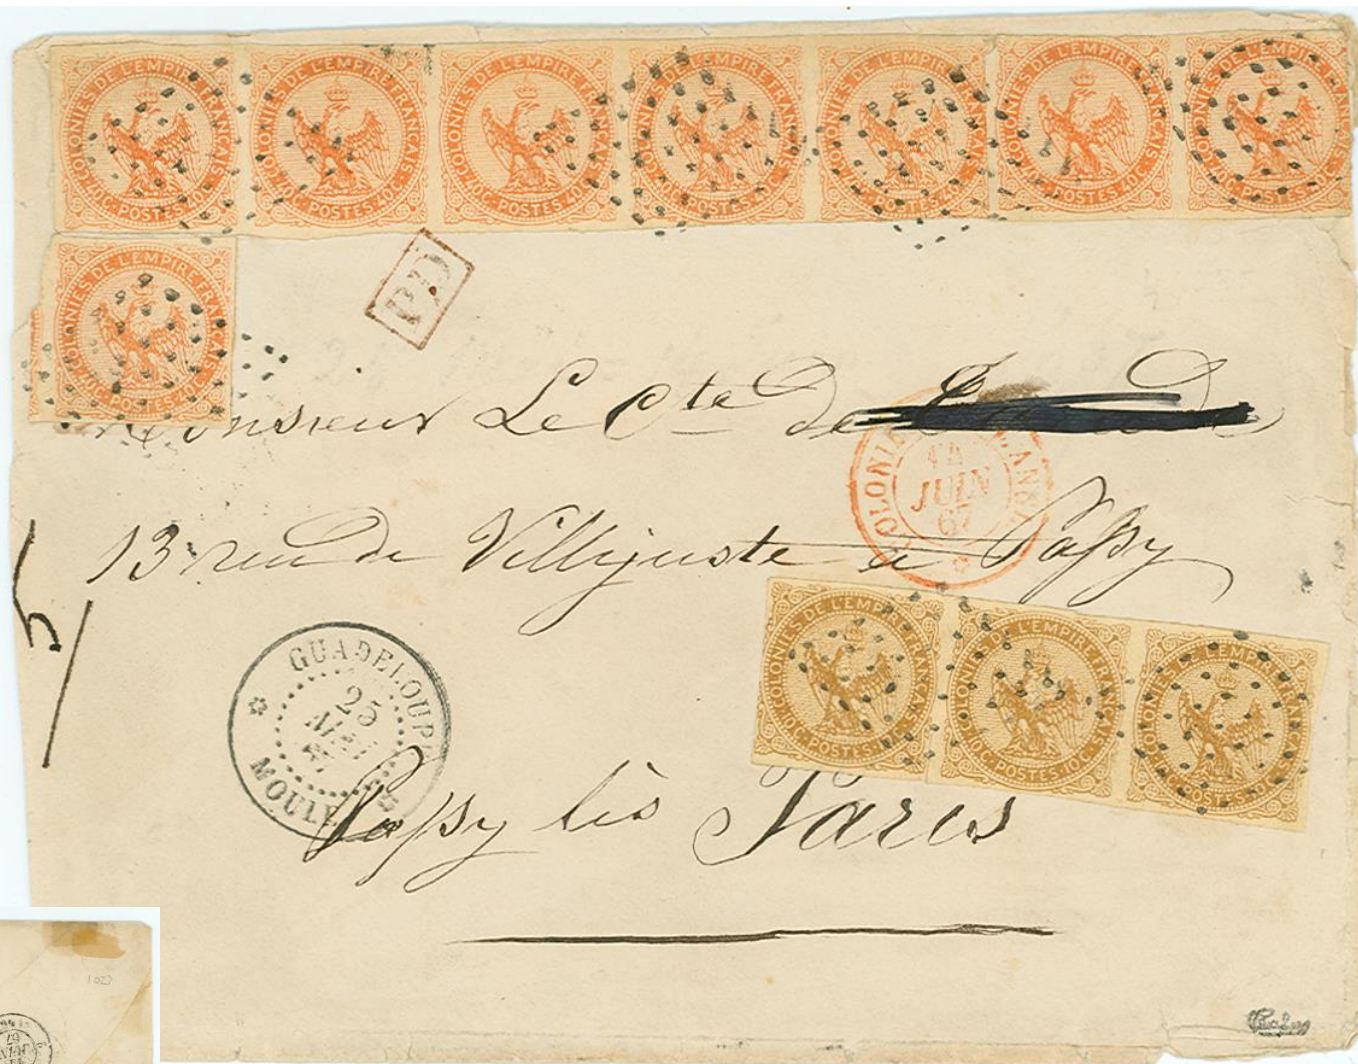 COLONIES DE L'EMPIRE FRANÇAIS
40C. POSTES. 40C.
COLONIES DE L'EMPIRE FRANÇAIS
40C. POSTES. 40C.
COLONIES DE L'EMPIRE FRANÇAIS
40C. POSTES. 40C.
COLONIES DE L'EMPIRE FRANÇAIS
40C. POSTES. 40C.
COLONIES DE L'EMPIRE FRANÇAIS
40C. POSTES. 40C.
COLONIES DE L'EMPIRE FRANÇAIS
40C. POSTES. 40C.
COLONIES DE L'EMPIRE FRANÇAIS
40C. POSTES. 40C.
COLONIES DE L'EMPIRE FRANÇAIS
40C. POSTES. 40C.
PD
Monsieur Le Cte de
JUIN
67
13 rue de Villejuste a Passy
COLONIES DE L'EMPIRE FRANÇAIS
10C. POSTES. 10C.
COLONIES DE L'EMPIRE FRANÇAIS
10C. POSTES. 10C.
COLONIES DE L'EMPIRE FRANÇAIS
10C. POSTES. 10C.
GUADELOUPE
25
MOULE
Passy lès Paris